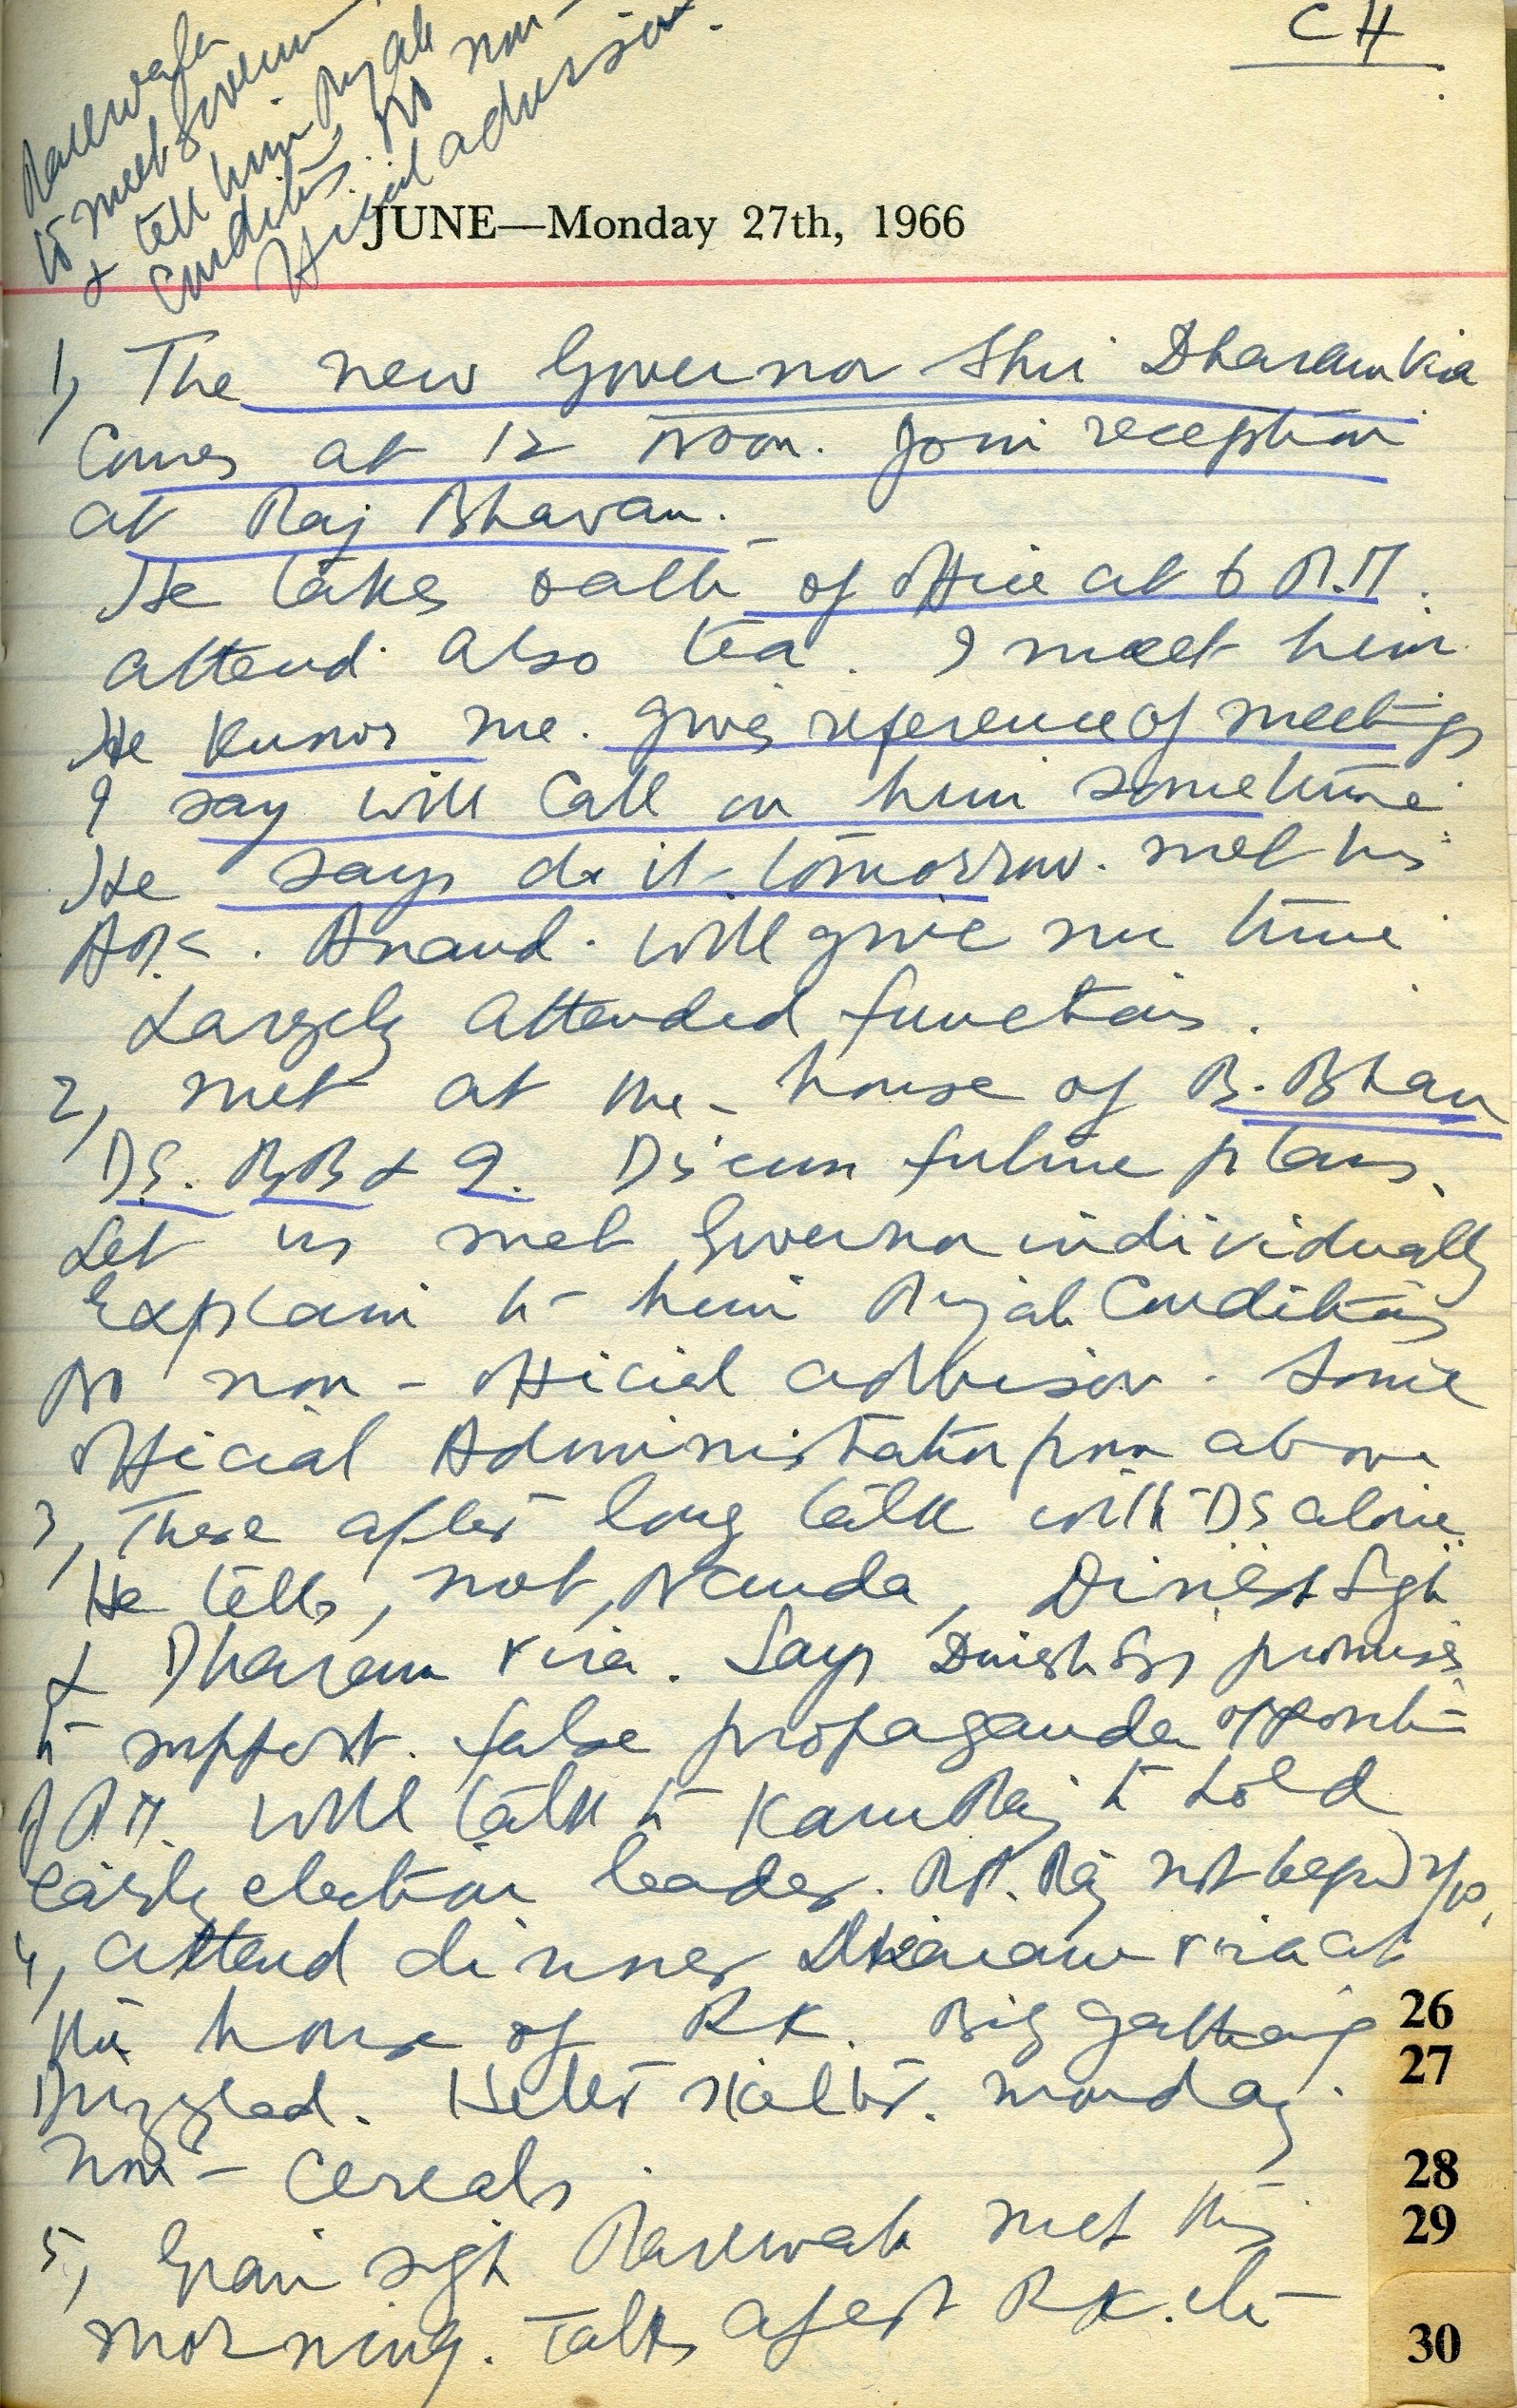 CH
Rarewala
to meet Governor
& tell him Punjab
Conditions. No non-
Official advisor.
JUNE—Monday 27th, 1966
1, The new Governor Shri Dharam Vira
Comes at 12 Noon. Join reception
at Raj Bhavan.
He takes oath of office at 6 P.M.
attend also tea. I meet him
He knows me. gives reference of meetings
I say will call on him sometime
He says do it tomorrow. met his
Anand. will give me time
Largely attended function.
2, met at the house of B. Bhan
DS. BB & I. Discuss future plans.
Let us meet Governor individually
Explain to him Punjab Conditions
No non-official advisor. Some
official Administrator from above
3, There after long talk with DS alone.
He tells, met, Nanda, Dinesh Sgh
& Dharam Vira. Says Dinesh Sgh promises
to support. false propaganda opposition
of P.M. will talk to KamRaj to hold
early election leader.
4, attend dinner Dharam Vira at
the house of RK. Big gathering
Drizzled. Helter skelter. monday.
Non-cereals.
5, Gian Sgh Rarewala met this
morning. Talks against RK. etc
26
27
28
29
30